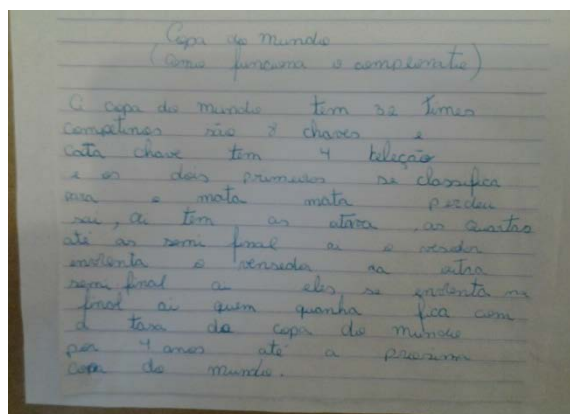 Copa do mundo
(como funciona o campeonato)
A copa do mundo tem 32 times
competinos são 8 chaves e
cata chave tem 4 seleção
e os dois primeiros se classifica
pra o mata mata perdeu
sai, ai tem as otava, as quartas
até as semi final ai o vesedor
enfrenta o vensedor na outra
semi final ai eles, se enfrenta na
final ai quem guanha fica com
a tasa da copa do mundo
por 4 anos até a prossima
copa do mundo.